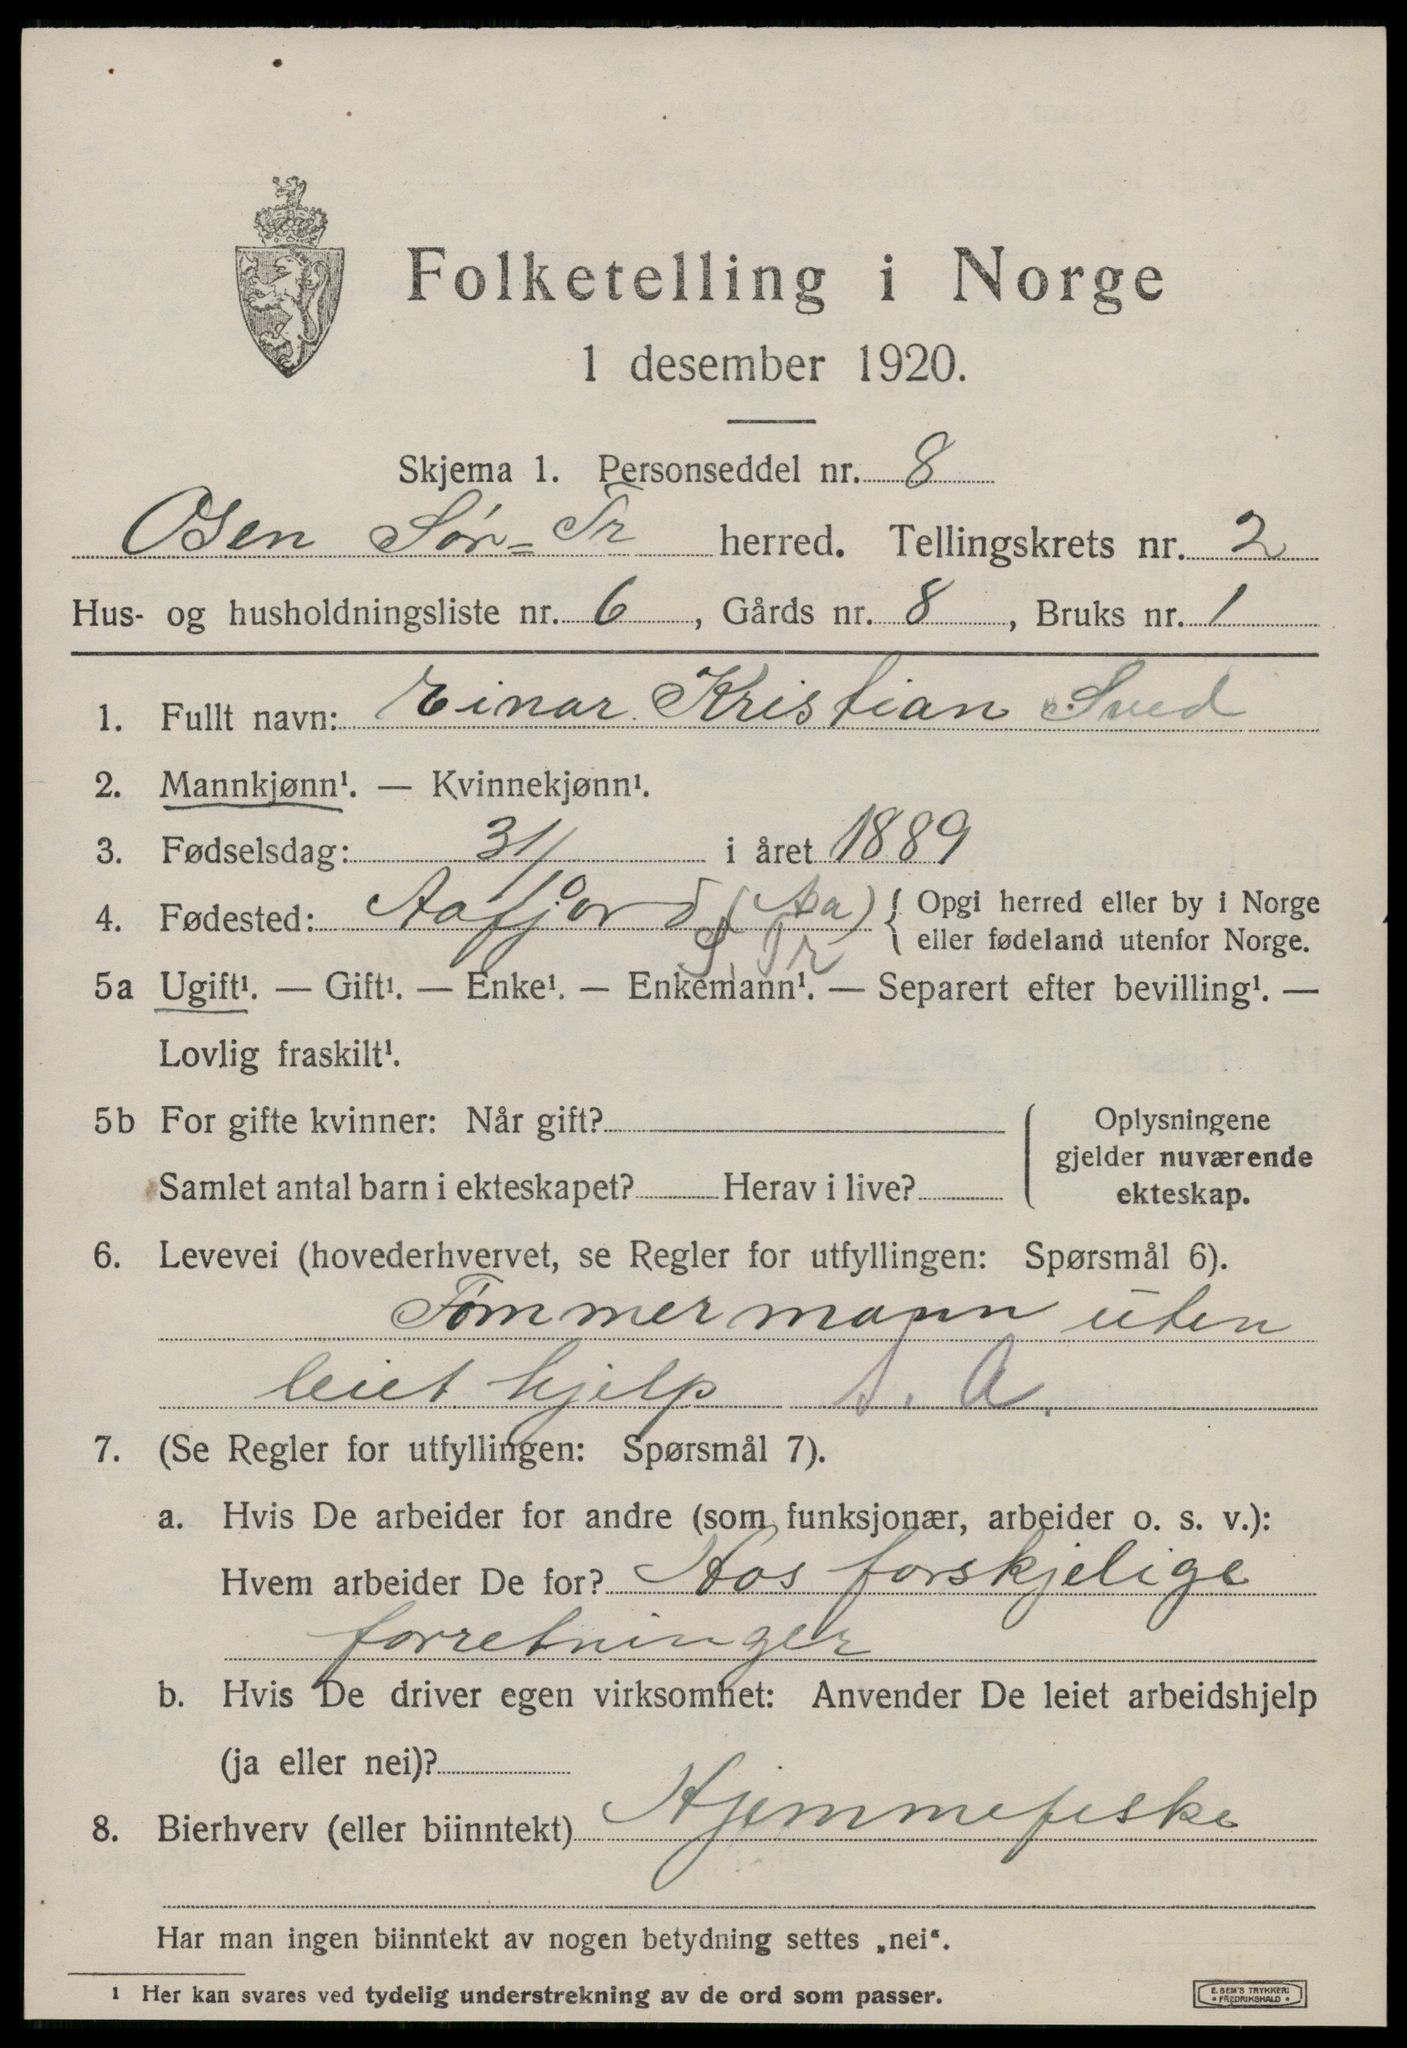 Folketelling i Norge
1 desember 1920.
Skjema 1. Personseddel nr. 8
Osen Sør-Tr herred. Tellingskrets nr. 2
Hus- og husholdningsliste nr. 6, Gårds nr. 8, Bruks nr. 1
1. Fullt navn: Einar Kristian Sved
2. Mannkjønn¹. — Kvinnekjønn¹.
3. Fødselsdag: 31/10 i året 1889
4. Fødested: Aafjord (Aa) { Opgi herred eller by i Norge
S. Tr eller fødeland utenfor Norge.
5a Ugift¹. — Gift¹. — Enke¹. — Enkemann¹. — Separert efter bevilling¹. —
Lovlig fraskilt¹.
5b For gifte kvinner: Når gift?
Samlet antal barn i ekteskapet? Herav i live?
Oplysningene
gjelder nuværende
ekteskap.
6. Levevei (hovederhvervet, se Regler for utfyllingen: Spørsmål 6).
Tømmermann uten
leiet hjelp S. A.
7. (Se Regler for utfyllingen: Spørsmål 7).
a. Hvis De arbeider for andre (som funksjonær, arbeider o. s. v.):
Hvem arbeider De for? Hos forskjelige
forretninger
b. Hvis De driver egen virksomhet: Anvender De leiet arbeidshjelp
(ja eller nei)?
8. Bierhverv (eller biinntekt) Hjemmefiske
Har man ingen biinntekt av nogen betydning settes „nei“.
¹ Her kan svares ved tydelig understrekning av de ord som passer.
E. SEM'S TRYKKERI
• FREDRIKSHALD •